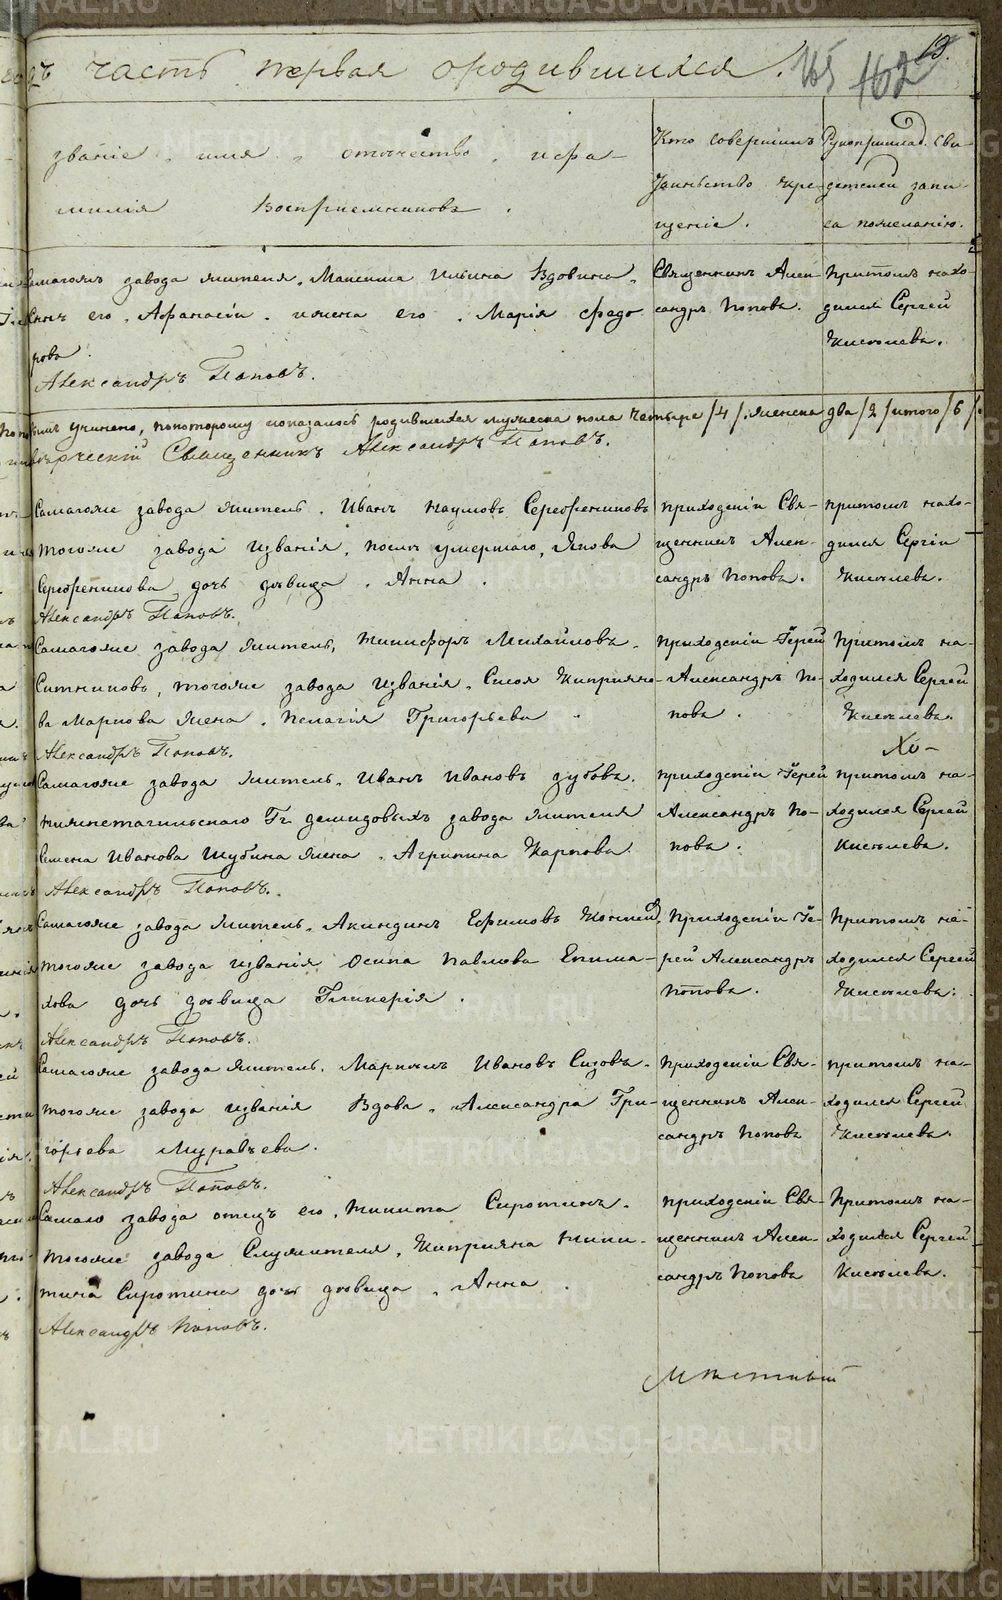 часть первая ородившихся.
162
званіе, имя, отечество, ифа-
милія Воспріемниковъ.
Кто совершилъ
таинство кре-
щенія.
Рукоприклад. сви-
детелей запи-
са пожеланію.
Самагожъ завода жителя, Максима Ильина Вдовина,
сынъ его, Афанасій, и жена его, Марія Федо
рова.
Александръ Поповъ.
Священникъ Алек-
сандръ Поповъ.
Притомъ нахо-
дился Сергей
Киселевъ.
учинено, покоторому показалось родившихся мужеска пола четыре /4/, женска два /2/ итого /6/.
Священникъ Александръ Поповъ.
Самагоже завода житель, Иванъ Наумовъ Серебрениковъ
тогоже завода Изванія, послѣ умершаго, Якова
Серебреникова дочь дѣвица, Анна.
Александръ Поповъ.
приходскіи Свя-
щенникъ Алек-
сандръ Поповъ.
притомъ нахо-
дился Сергіи
Киселевъ.
Самагоже завода житель, Никифоръ Михайловъ
Ситниковъ, тогоже завода Изванія, Сысоя Кипріяно-
ва Маркова жена, Пелагія Григорьева.
Александръ Поповъ.
приходскіи Іерей
Александръ По-
повъ.
притомъ на-
ходился Сергей
Киселевъ.
Хо-
Самагоже завода житель, Иванъ Ивановъ Зубовъ.
Нижнетагильскаго Гг Демидовыхъ завода жителя
Семена Иванова Шубина жена, Агрипина Карпова.
Александръ Поповъ.
приходскіи Іерей
Александръ По-
повъ.
притомъ на-
ходился Сергей
Киселевъ.
Самагоже завода житель, Акиндинъ Ефимовъ
тогоже завода Изванія Осипа Павлова Епима-
хова дочь дѣвица Гликерія.
Александръ Поповъ.
Приходскіи Іе-
рей Александръ
Поповъ.
Притомъ на-
ходился Сергей
Киселевъ.
Самагоже завода житель, Маркелъ Ивановъ Сизовъ.
тогоже завода Изванія Вдова, Александра Гри-
горьева Муравьева.
Александръ Поповъ.
приходскіи Свя-
щенникъ Алек-
сандръ Поповъ
притомъ на-
ходился Сергей
Киселевъ.
Самаго завода отецъ его, Никита Сиротинъ.
тогоже завода Служителя, Кипріяна Ники-
тина Сиротина дочь дѣвица, Анна.
Александръ Поповъ.
приходскіи Свя-
щенникъ Алек-
сандръ Поповъ
Притомъ на-
ходился Сергей
Киселевъ.
METRIKI.GASO-URAL.RU